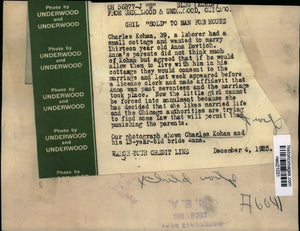 Photo by
UNDERWOOD
and
UNDERWOOD
Photo by
UNDERWOOD
and
UNDERWOOD
Photo by
UNDERWOOD
and
UNDERWOOD
Photo by
UNDERWOOD
and
UNDERWOOD
FROM UNDERWOOD & UNDERWOOD, CHICAGO.
GIRL "SOLD" TO MAN FOR HOUSE
Charles Kohan, 39, a laborer had a
small cottage and wanted to marry
thirteen year old Anna Dovtich.
Anna's parents did not think much
of Kohan but agreed that if he would
allow them to live with him in the
cottage they would consent to the
marriage and last week appeared before
a license clerk and made affidavit that
Anna was past seventeen and the marriage
took place. Now the little girl cannot
be forced into annulment because she
has decided that she likes married life
and the Chicago authorities are trying
to find some law that will permit them
punishing the parents.
Our photograph shows Charles Kohan and
his 13-year-old bride Anna.
WATCH YOUR CREDIT LINE
December 4, 1925.